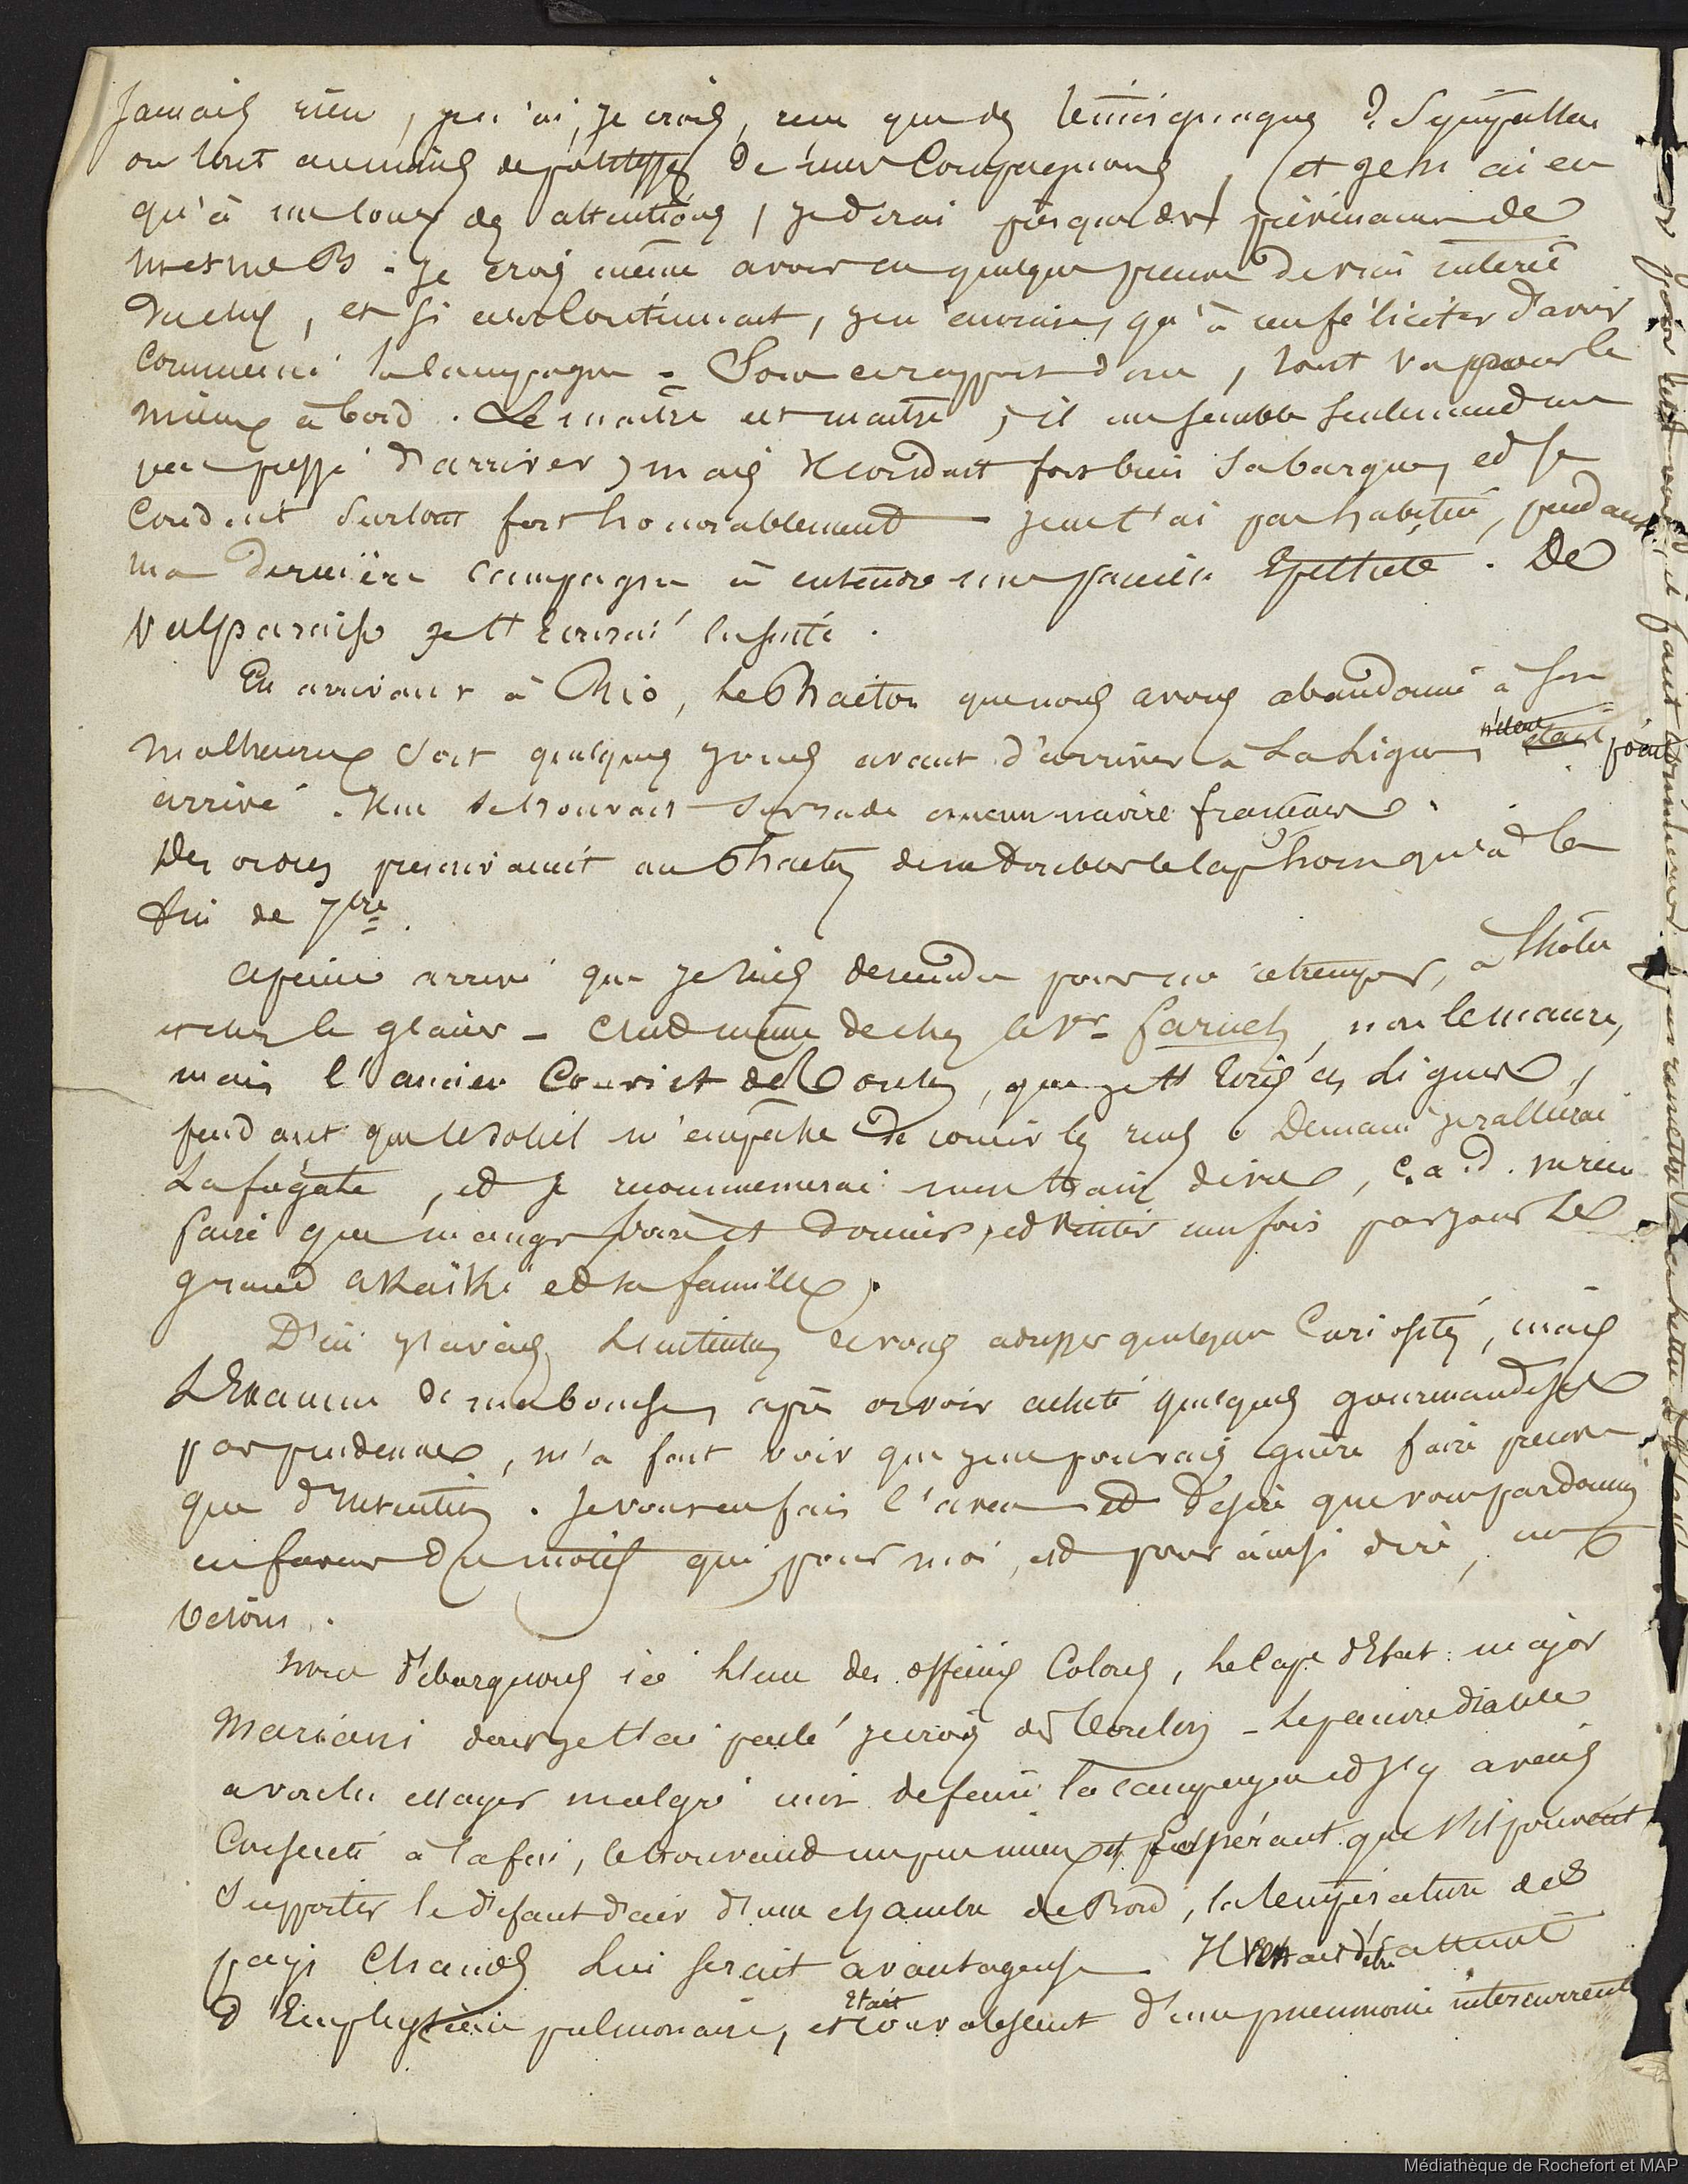 Jamais rien, je n'ai, je crois, reçu que des témoignages de Sympathie
ou tout au moins de politesse de mes Compagnons, et je n'ai eu
qu'à me louer des attentions, je dirai presque des prévenances de
Mr et Mme B. Je crois même avoir eu quelque preuve de vrai intérêt
chez eux, et si cela continuait, je n'aurais qu'à me féliciter d'avoir
commencé la campagne = Sous ce rapport donc, tout va pour le
mieux à bord. Le maître est maître, il me semble seulement un
peu pressé d'arriver, mais Il conduit fort bien sa barque, et se
Conduit surtout fort honorablement je ne t'ai pas habitué, pendant
ma dernière campagne à entendre une pareille Epithète. De
Valparaiso je t'Ecrirai la suite.
En arrivant à Rio, le Phaéton que nous avons abandonné à son
malheureux sort quelques jours avant d'arriver à La Ligne, n'était point
arrivé. Il ne se trouvait sur rade aucun navire français.
Des ordres prescrivaient au Phaéton de ne doubler le Cap horn qu'à la
fin de 7bre.
A peine arrivé que je suis descendu pour me retremper, à l'hôtel
et chez le glacier - C'est même de chez Mr Faruch, non le maure,
mais l'ancien de Toulon, que je t'Ecris ces lignes,
pendant que le soleil m'empêche de courir les rues. Demain je rallierai
La frégate, et je recommencerai mon train de vie, c.a.d. ne rien
faire que manger, boire et dormir, et visiter une fois par jour Le
grand et sa famille.
D'ici j'avais L'intention de vous adresser quelques Curiosités, mais
L'Examen de ma bourse, après avoir acheté quelques gourmandises
par prudence, m'a fait voir que je ne pourrais guère faire preuve
que d'Intention. Je vous en fais l'aveu et désire que vous pardonniez
en faveur du motif qui, pour moi, est pour ainsi dire, un
besoin.
Nous débarquons ici L'un des officiers Colons, Le Cape d'Etat-major
Mariani dont je t'ai parlé je crois de Toulon - Le pauvre diable
a voulu essayer malgré moi de faire la campagne et j'y avais
Consenti à la fin, le trouvant un peu mieux et espérant que s'il pouvait
Supporter le défaut d'air d'une chambre de Bord, la température des
pays Chauds Lui serait avantageuse. Il était atteint
d'Emphysème pulmonaire, et était convalescent d'une pneumonie intercurrente
Médiathèque de Rochefort et MAP